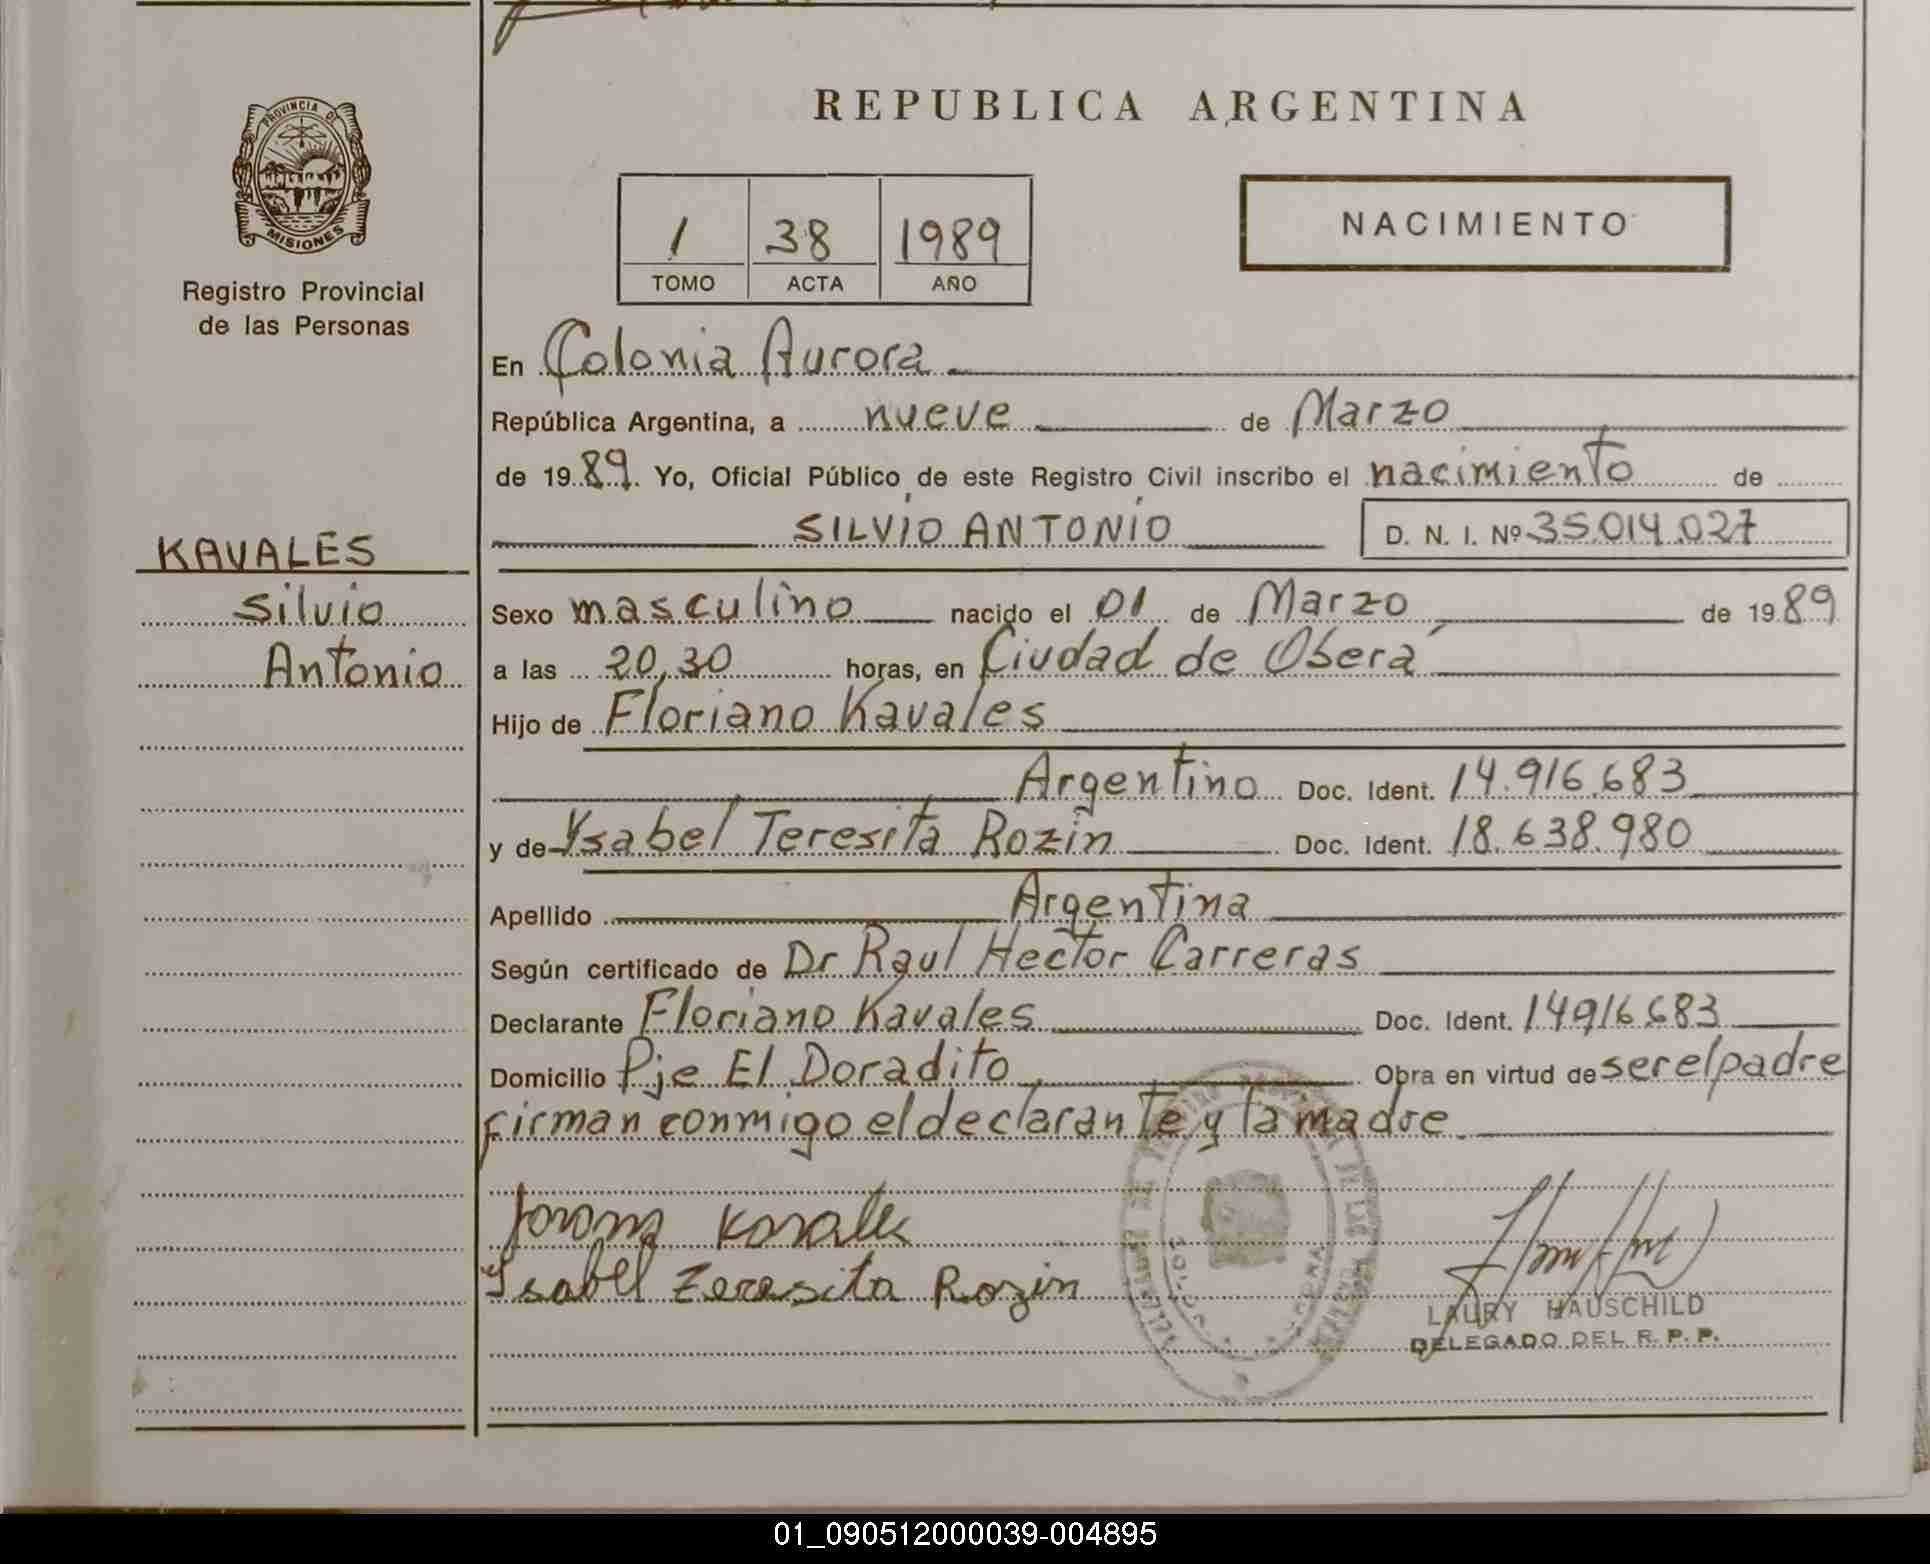 PROVINCIA DE
MISIONES
Registro Provincial
de las Personas
KAVALES
Silvio
Antonio
REPUBLICA ARGENTINA
1 38 1989
TOMO ACTA AÑO
NACIMIENTO
En Colonia Aurora
República Argentina, a nueve de Marzo
de 1989. Yo, Oficial Público de este Registro Civil inscribo el nacimiento de
SILVIO ANTONIO D. N. I. Nº 35.014.027
Sexo masculino nacido el 01 de Marzo de 1989
a las 20,30 horas, en Ciudad de Oberá
Hijo de Floriano Kavales
Argentino Doc. Ident. 14.916.683
y de Ysabel Teresita Rozin Doc. Ident. 18.638.980
Apellido Argentina
Según certificado de Dr Raul Hector Carreras
Declarante Floriano Kavales Doc. Ident. 14916.683
Domicilio Pje El Doradito Obra en virtud de ser el padre
firman conmigo el declarante y la madre
Ysabel Teresita Rozin
LAURY HAUSCHILD
DELEGADO DEL R. P. P.
01_090512000039-004895